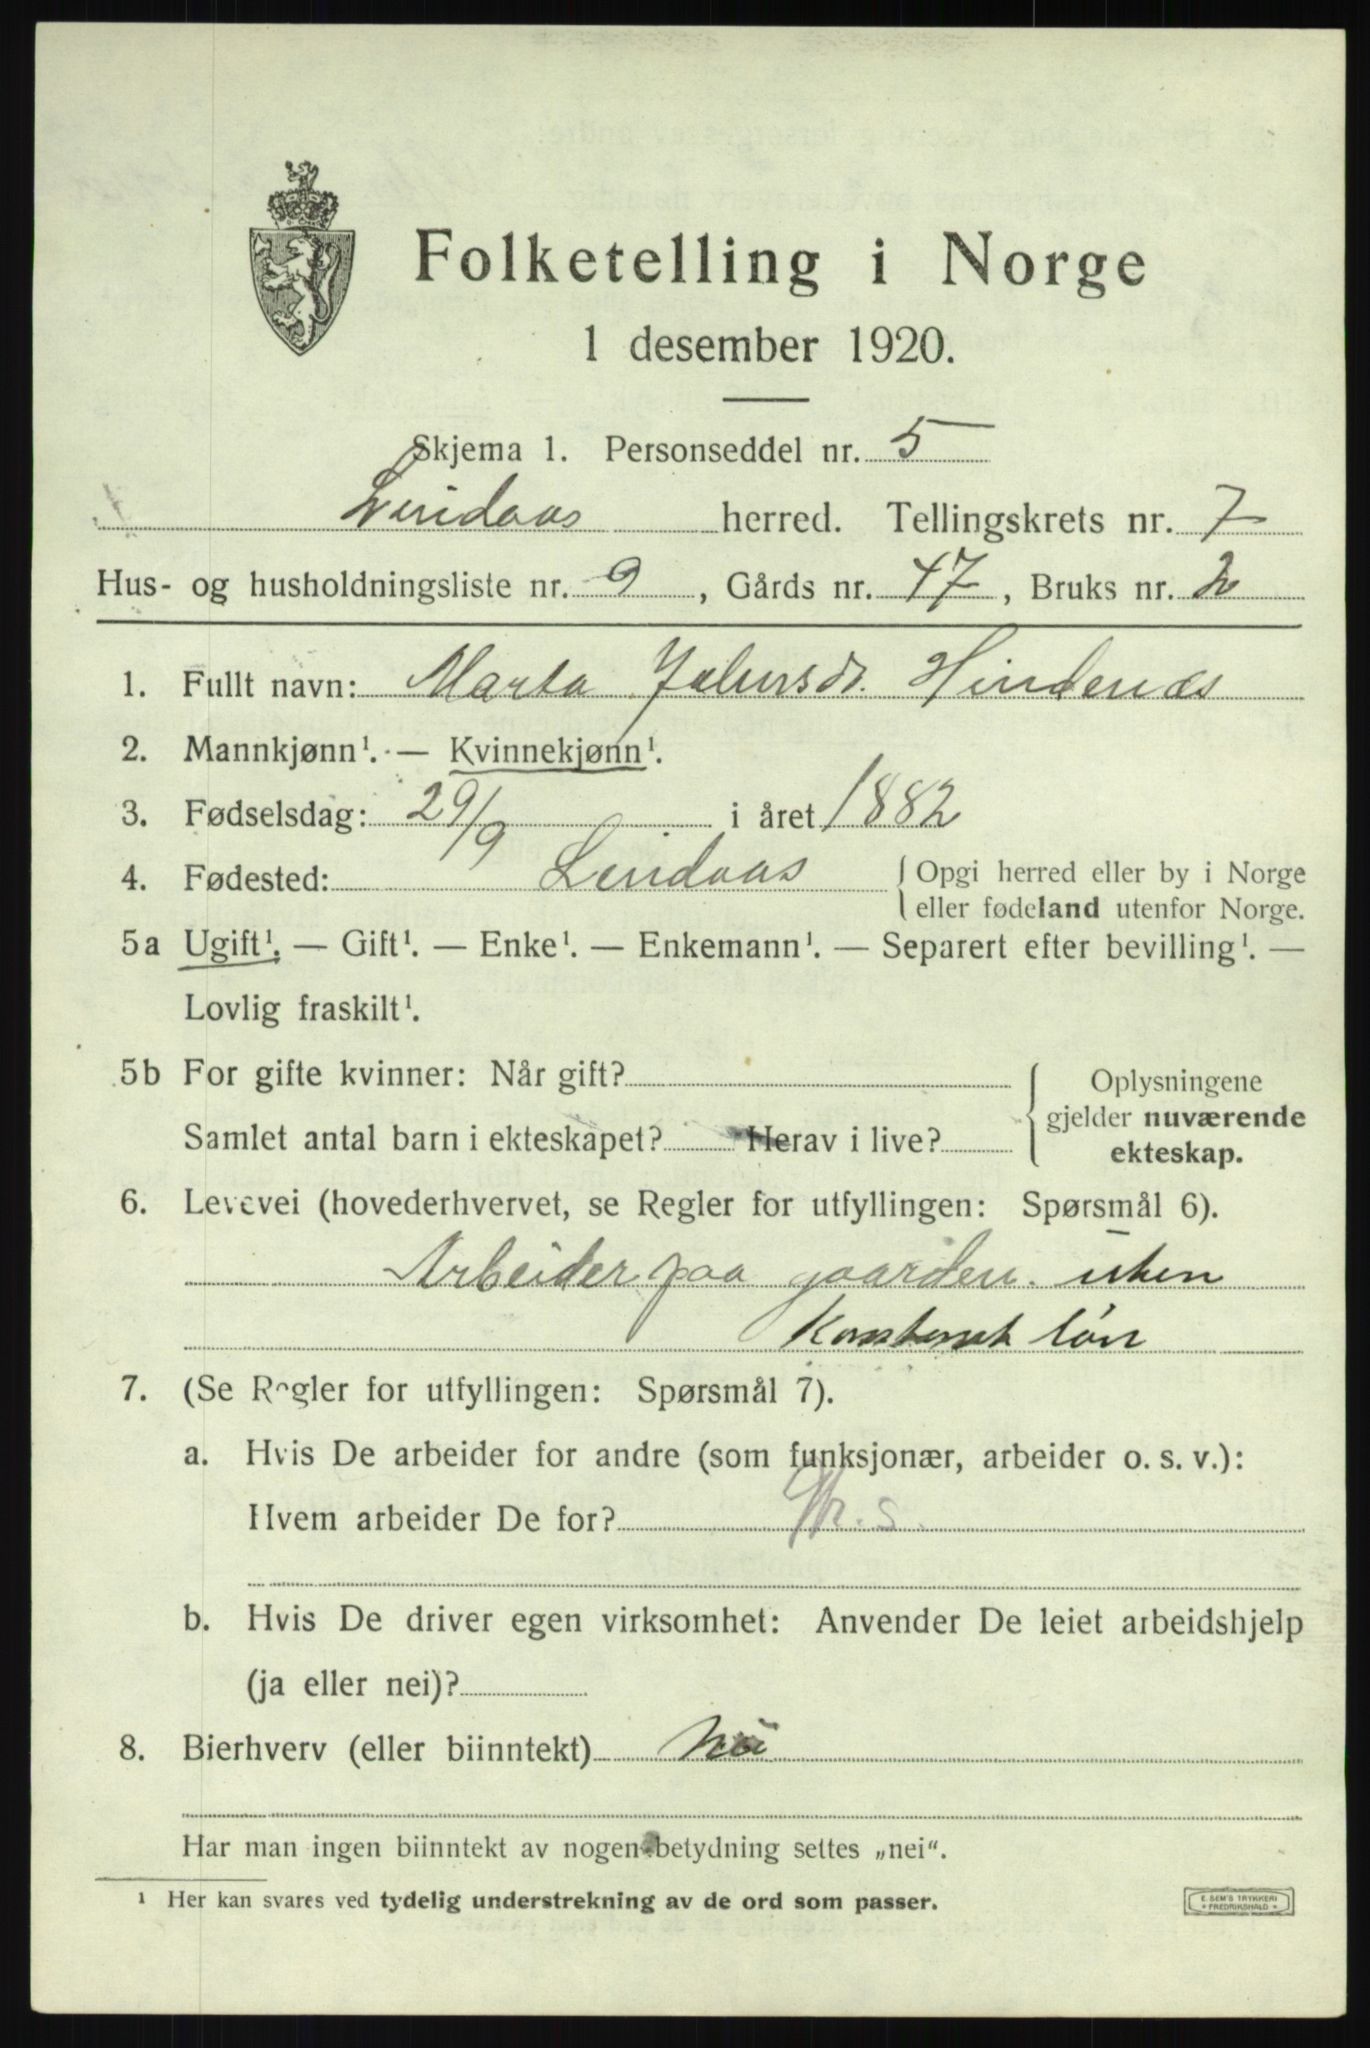 Folketelling i Norge
1 desember 1920.
Skjema 1. Personseddel nr. 5
Lindaas herred. Tellingskrets nr. 7
Hus- og husholdningsliste nr. 9, Gårds nr. 47, Bruks nr. 2
1. Fullt navn: Marta Hindenæs
2. Mannkjønn¹. — Kvinnekjønn¹.
3. Fødselsdag: 29/9 i året 1882
4. Fødested: Lindaas { Opgi herred eller by i Norge
eller fødeland utenfor Norge.
5a Ugift¹. — Gift¹. — Enke¹. — Enkemann¹. — Separert efter bevilling¹. —
Lovlig fraskilt¹.
5b For gifte kvinner: Når gift? { Oplysningene
gjelder nuværende
Samlet antal barn i ekteskapet? Herav i live?
ekteskap.
6. Levevei (hovederhvervet, se Regler for utfyllingen: Spørsmål 6).
Arbeider paa gaarden. uten
Kontrakt løn
7. (Se Regler for utfyllingen: Spørsmål 7).
a. Hvis De arbeider for andre (som funksjonær, arbeider o. s. v.):
Hvem arbeider De for?
b. Hvis De driver egen virksomhet: Anvender De leiet arbeidshjelp
(ja eller nei)?
8. Bierhverv (eller biinntekt) Nei
Har man ingen biinntekt av nogen betydning settes „nei“.
¹ Her kan svares ved tydelig understrekning av de ord som passer.
E. SEM'S TRYKKERI
FREDRIKSHALD